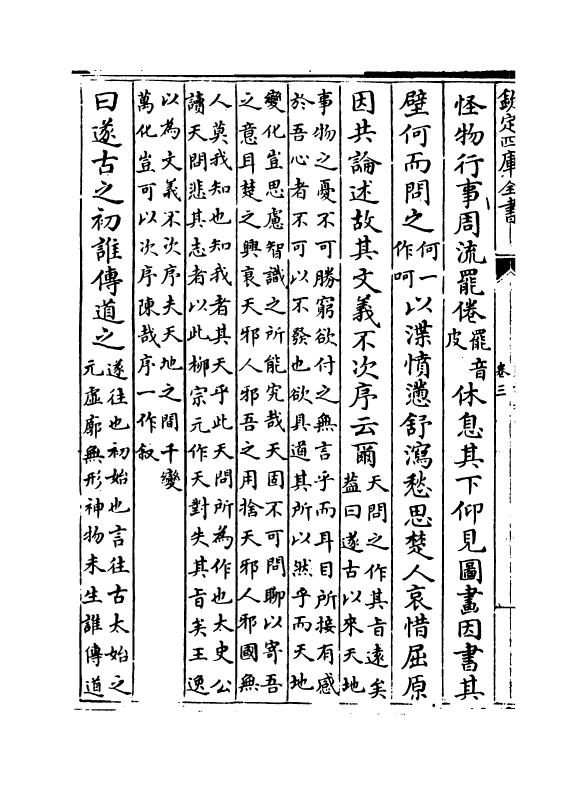 欽定四庫全書
卷三
怪物行事周流罷倦罷音皮休息其下仰見圖畫因書其
壁何而問之何一作呵以渫憤懣舒瀉愁思楚人哀惜屈原
因共論述故其文義不次序云爾天問之作其旨遠矣
葢曰遂古以來天地
事物之憂不可勝窮欲付之無言乎而耳目所接有感
於吾心者不可以不發也欲具道其所以然乎而天地
變化豈思慮智識之所能究哉天固不可問聊以寄吾
之意耳楚之興衰天邪人邪吾之用捨天邪人邪國無
人莫我知也知我者其天乎此天問所為作也太史公
讀天問悲其志者以此柳宗元作天對失其旨矣王逸
以為文義不次序夫天地之間千變
萬化豈可以次序陳哉序一作叙
曰遂古之初誰傳道之遂往也初始也言往古太始之
元虛廓無形神物未生誰傳道